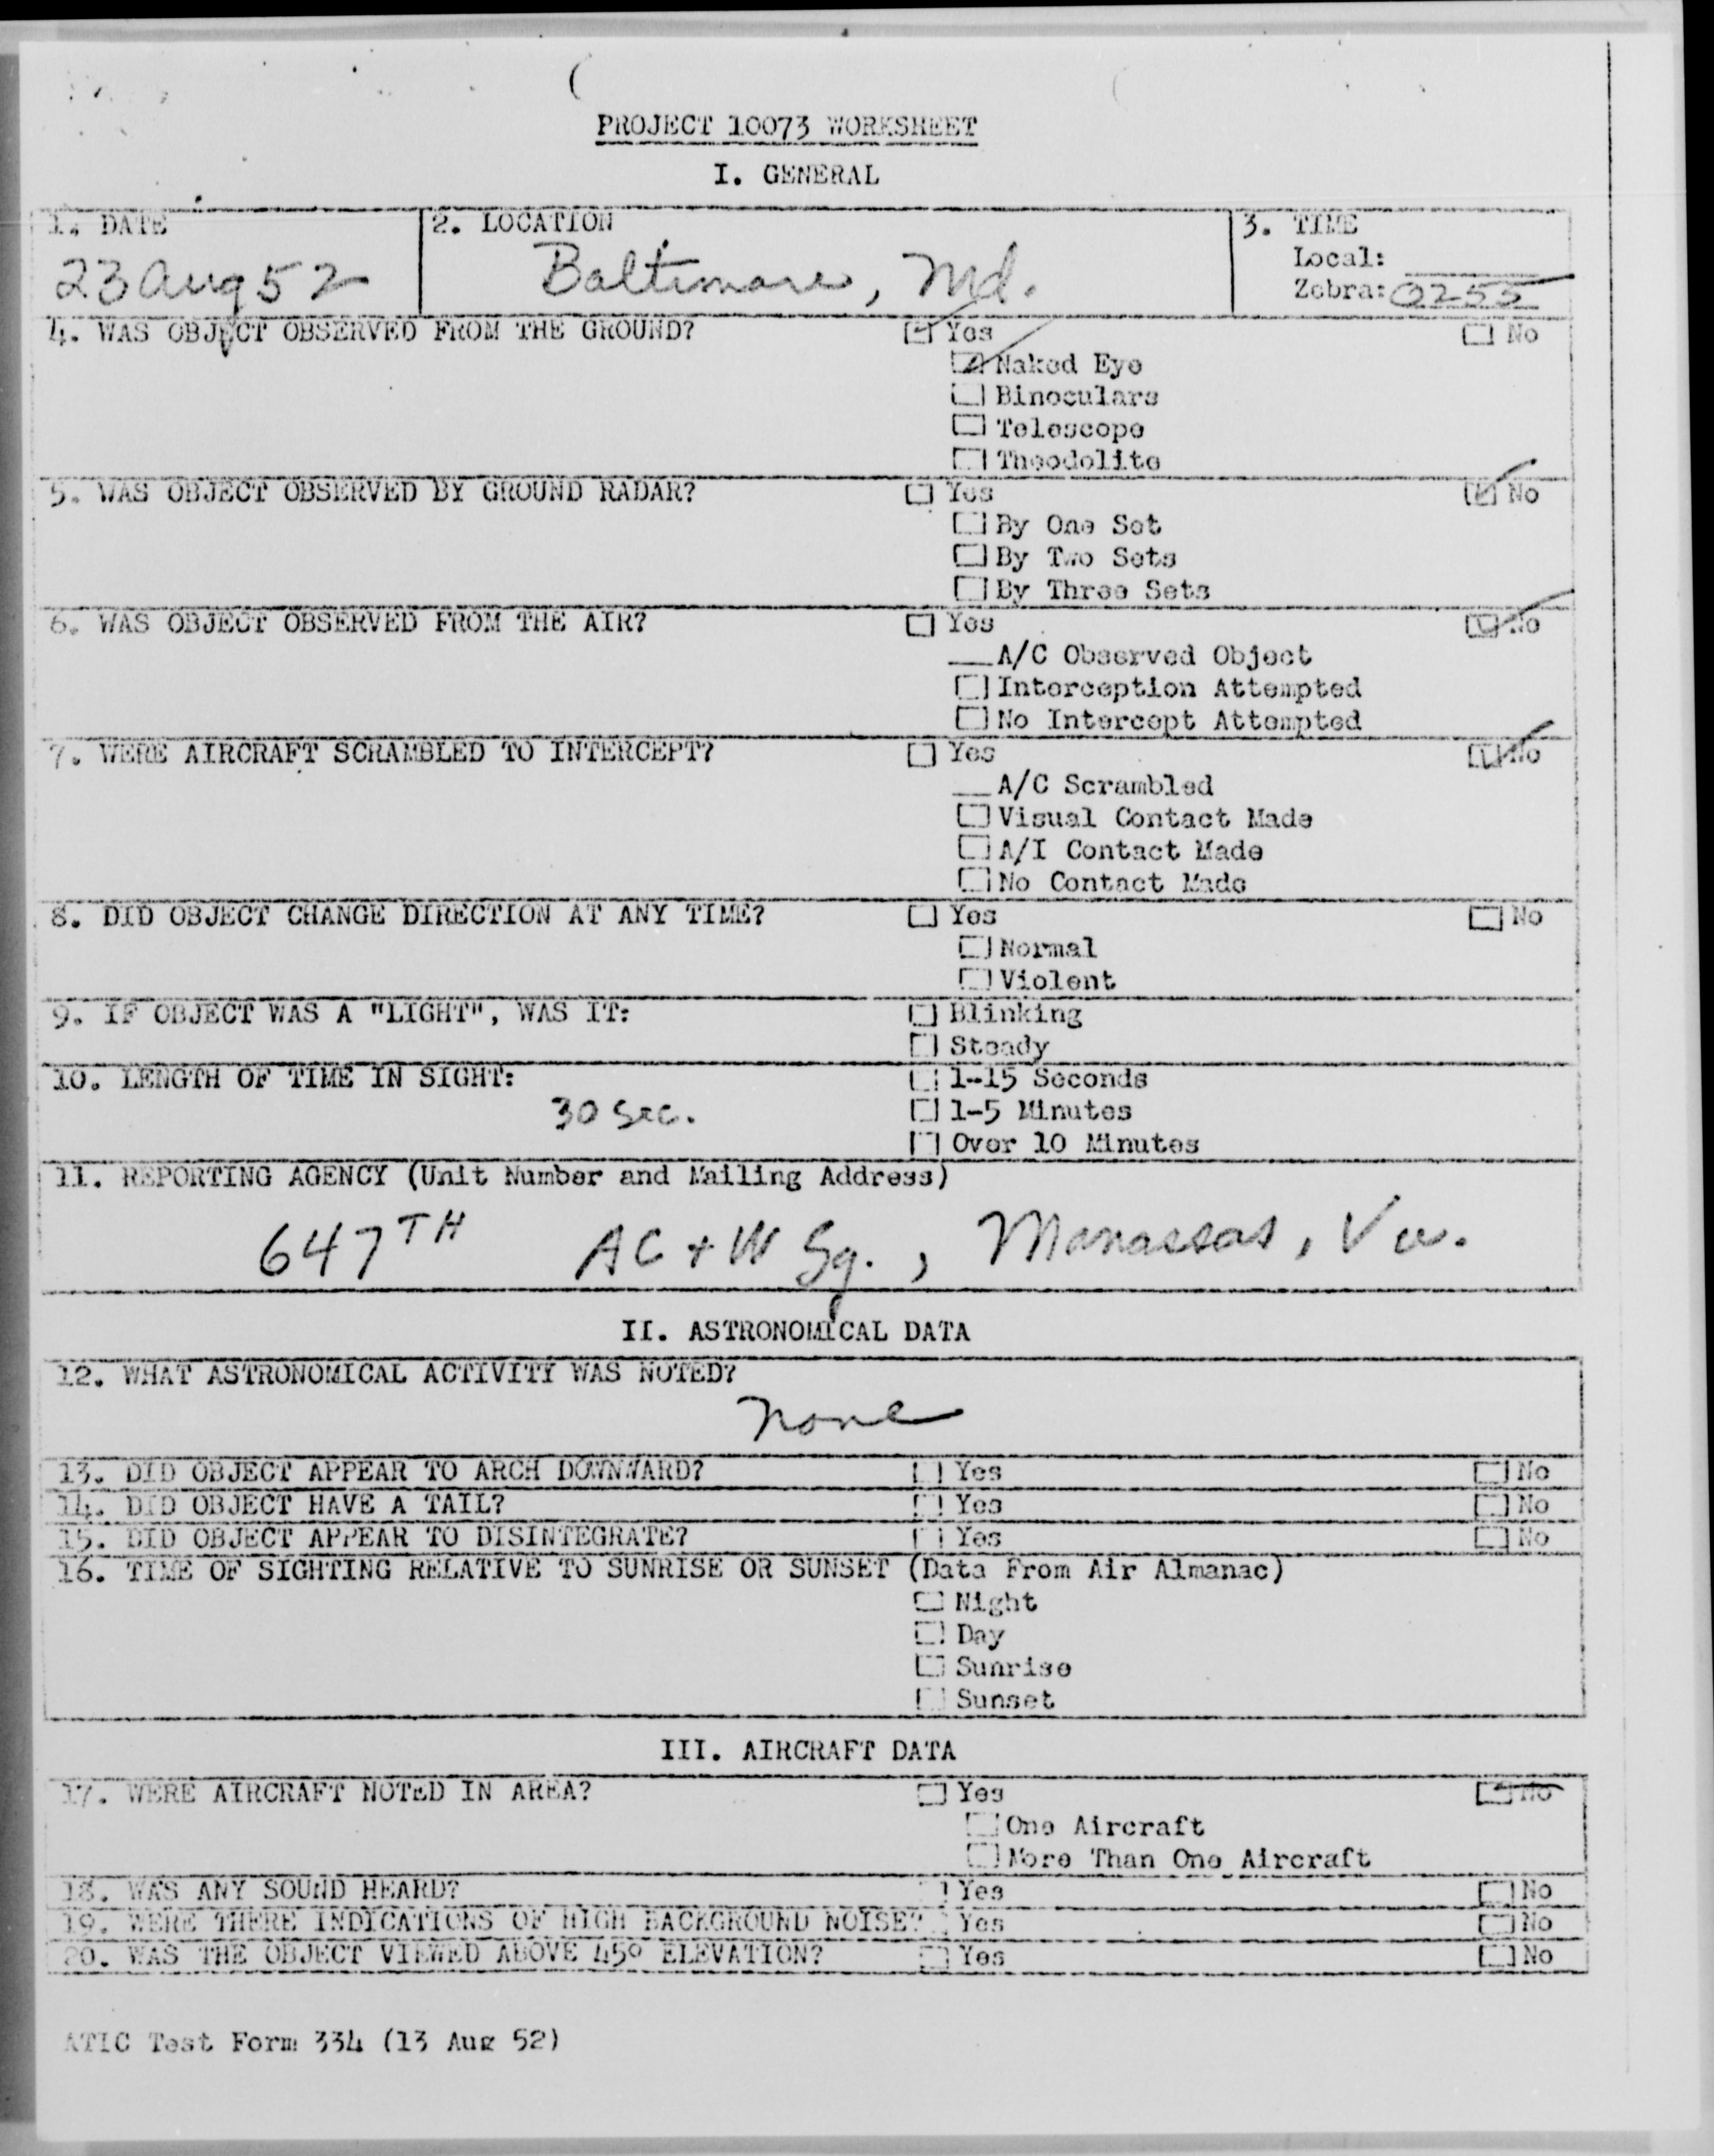 PROJECT 10073 WORKSHEET
I. GENERAL
1. DATE
2. LOCATION
3. TIME
23 Aug 52
Baltimore, Md.
Local:
Zebra: 0255
4. WAS OBJECT OBSERVED FROM THE GROUND?
Yes
No
Naked Eye
Binoculars
Telescope
Theodolite
5. WAS OBJECT OBSERVED BY GROUND RADAR?
Yes
No
By One Set
By Two Sets
By Three Sets
6. WAS OBJECT OBSERVED FROM THE AIR?
Yes
No
A/C Observed Object
Interception Attempted
No Intercept Attempted
7. WERE AIRCRAFT SCRAMBLED TO INTERCEPT?
Yes
No
A/C Scrambled
Visual Contact Made
A/I Contact Made
No Contact Made
8. DID OBJECT CHANGE DIRECTION AT ANY TIME?
Yes
No
Normal
Violent
9. IF OBJECT WAS A "LIGHT", WAS IT:
Blinking
Steady
10. LENGTH OF TIME IN SIGHT:
1-15 Seconds
30 Sec.
1-5 Minutes
Over 10 Minutes
11. REPORTING AGENCY (Unit Number and Mailing Address)
647TH AC + W Sq., Manassas, Va.
II. ASTRONOMICAL DATA
12. WHAT ASTRONOMICAL ACTIVITY WAS NOTED?
None
13. DID OBJECT APPEAR TO ARCH DOWNWARD?
Yes
No
14. DID OBJECT HAVE A TAIL?
Yes
No
15. DID OBJECT APPEAR TO DISINTEGRATE?
Yes
No
16. TIME OF SIGHTING RELATIVE TO SUNRISE OR SUNSET (Data From Air Almanac)
Night
Day
Sunrise
Sunset
III. AIRCRAFT DATA
17. WERE AIRCRAFT NOTED IN AREA?
Yes
No
One Aircraft
More Than One Aircraft
18. WAS ANY SOUND HEARD?
Yes
No
19. WERE THERE INDICATIONS OF HIGH BACKGROUND NOISE?
Yes
No
20. WAS THE OBJECT VIEWED ABOVE 45° ELEVATION?
Yes
No
ATIC Test Form 334 (13 Aug 52)